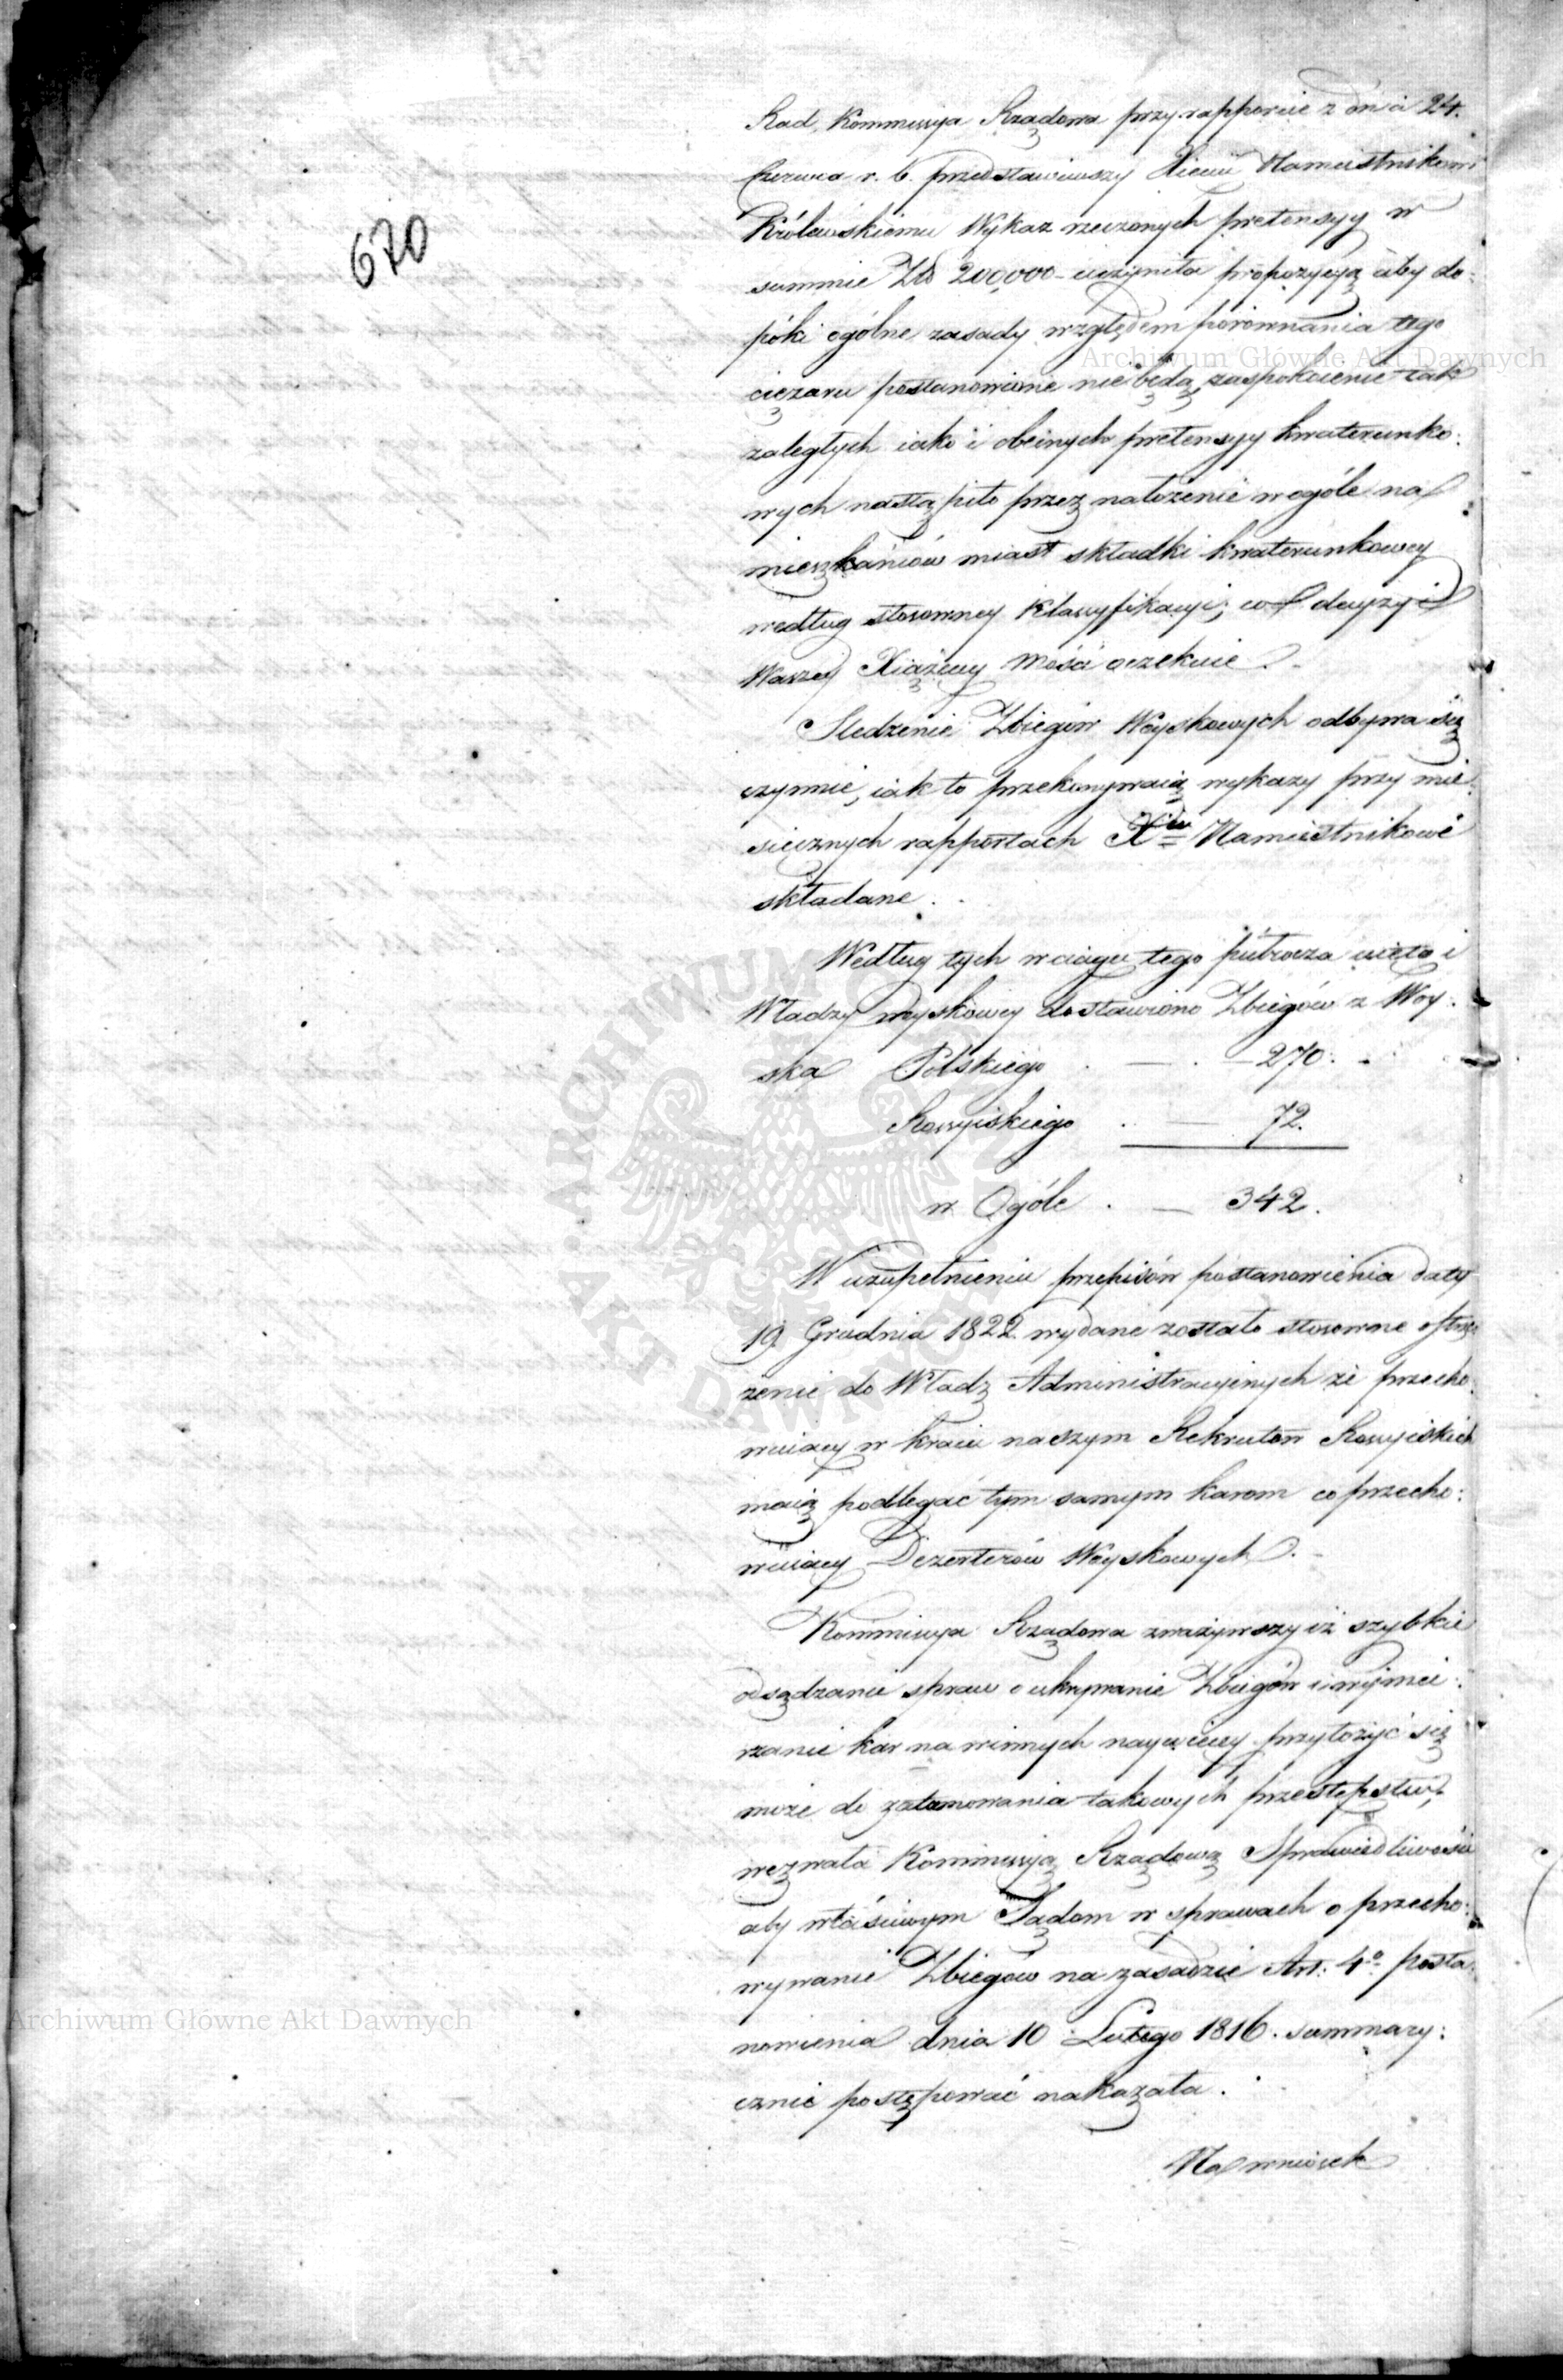 670
Rad, Kommissya Rządowa przy rapporcie z dnia 24.
Czerwca r. b. przedstawiwszy Xięciu Namiestnikowi
Królewskiemu Wykaz rzeczonych pretensyy w
summie Złł 200,000 – uczyniła propozycyą aby do:
póki ogólne zasady względem porównania tego
ciężaru postanowione nie będą, zaspokoienie tak
zaległych iako i obecnych pretensyy kwaterunko:
wych nastąpiło przez nałożenie w ogóle na
mieszkańców miast składki kwaterunkowey
według stosowney klassyfikacyi; co decyzyi
Waszey Xiążęcey Mości oczekuie.
Sledzenie Zbiegów Woyskowych odbywa się
czynnie, iak to przekonywaią wykazy przy mie:
sięcznych rapportach Xciu Namiestnikowi
składane.
Według tych w ciągu tego półrocza uięto i
Władzy woyskowey dostawiono Zbiegów z Woy:
ska Polskiego . — . — 270.
Rossyiskiego . — 72.
w Ogóle . — 342.
W uzupełnieniu przepisów postanowienia daty
19 Grudnia 1822 wydane zostało stosowne ostrze
żenie do Władz Administracyinych że przecho:
wuiący w kraiu naszym Rekrutów Rossyiskich
maią podlegać tym samym karom co przecho:
wuiący Dezerterów Woyskowych.
Kommissya Rządowa zważywszy iż szybkie
odsądzanie spraw o ukrywanie Zbiegów i wymie:
rzanie kar na winnych naywięcey przyłożyć się
może do zatamowania takowych przestępstw,
wezwała Kommissyą Rządową Sprawiedliwości
aby właściwym Sądom w sprawach o przecho:
wywanie Zbiegów na zasadzie Art: 4o posta:
nowienia dnia 10 Lutego 1816. summary:
cznie postępować nakazała.
Na wniosek
Archiwum Główne Akt Dawnych
Archiwum Główne Akt Dawnych